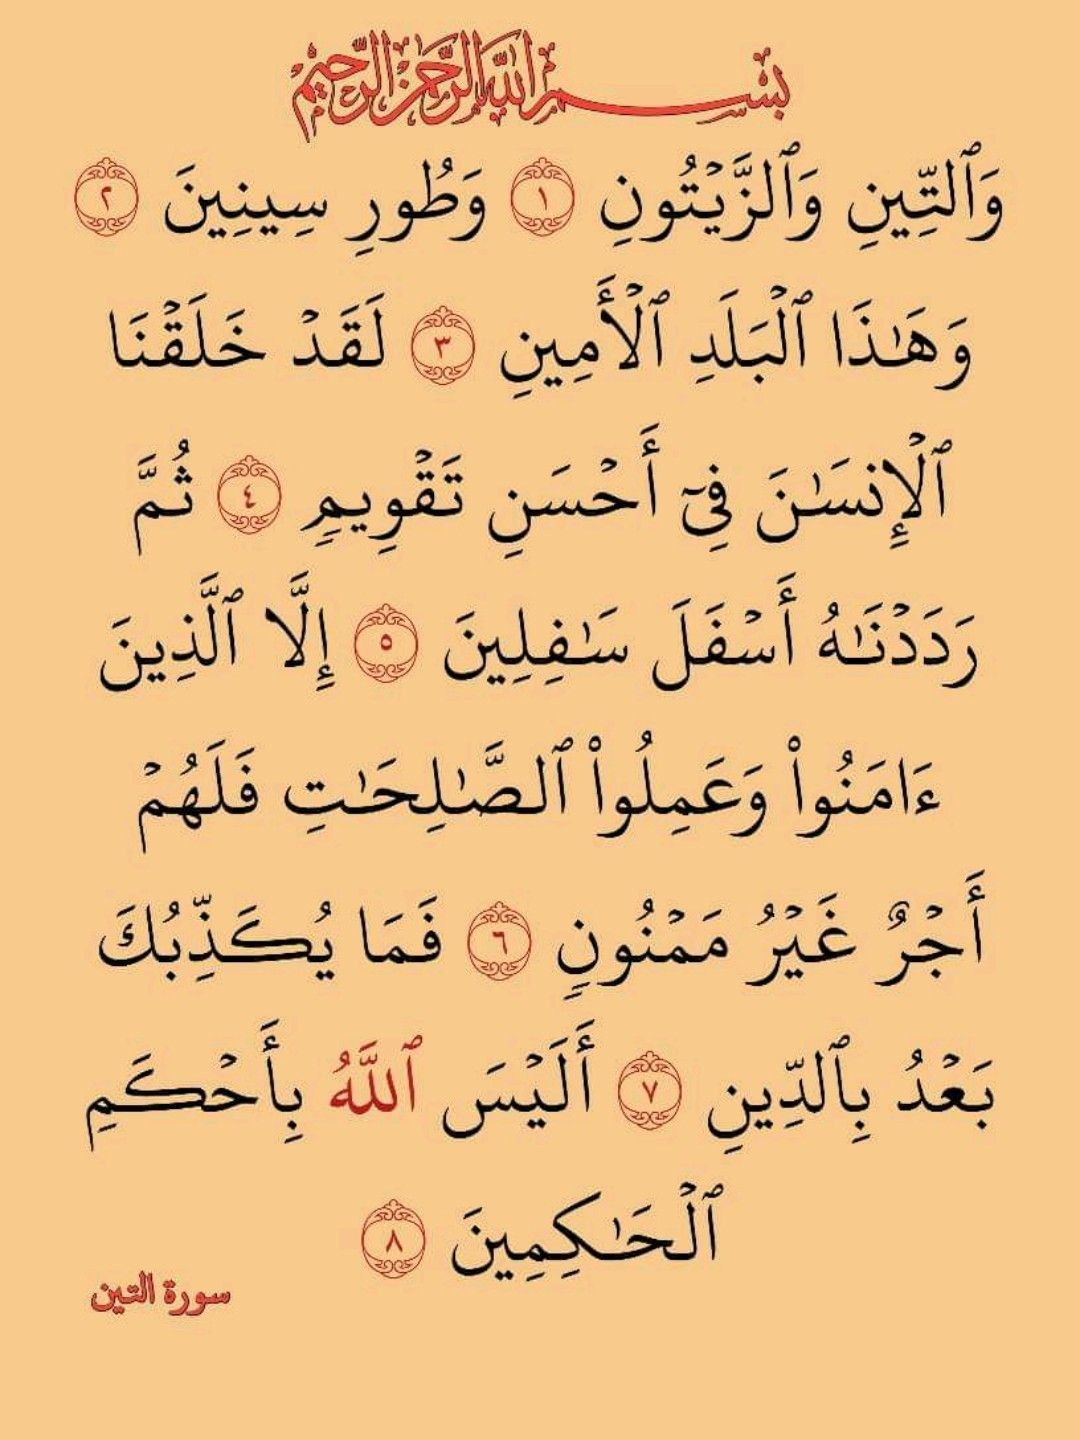 بسم الله الرحمن الرحيم
وَٱلتِّينِ وَٱلزَّيۡتُونِ ١ وَطُورِ سِينِينَ ٢
وَهَٰذَا ٱلۡبَلَدِ ٱلۡأَمِينِ ٣ لَقَدۡ خَلَقۡنَا
ٱلۡإِنسَٰنَ فِيٓ أَحۡسَنِ تَقۡوِيمٖ ٤ ثُمَّ
رَدَدۡنَٰهُ أَسۡفَلَ سَٰفِلِينَ ٥ إِلَّا ٱلَّذِينَ
ءَامَنُواْ وَعَمِلُواْ ٱلصَّٰلِحَٰتِ فَلَهُمۡ
أَجۡرٌ غَيۡرُ مَمۡنُونٖ ٦ فَمَا يُكَذِّبُكَ
بَعۡدُ بِٱلدِّينِ ٧ أَلَيۡسَ ٱللَّهُ بِأَحۡكَمِ
ٱلۡحَٰكِمِينَ ٨
سورة التين